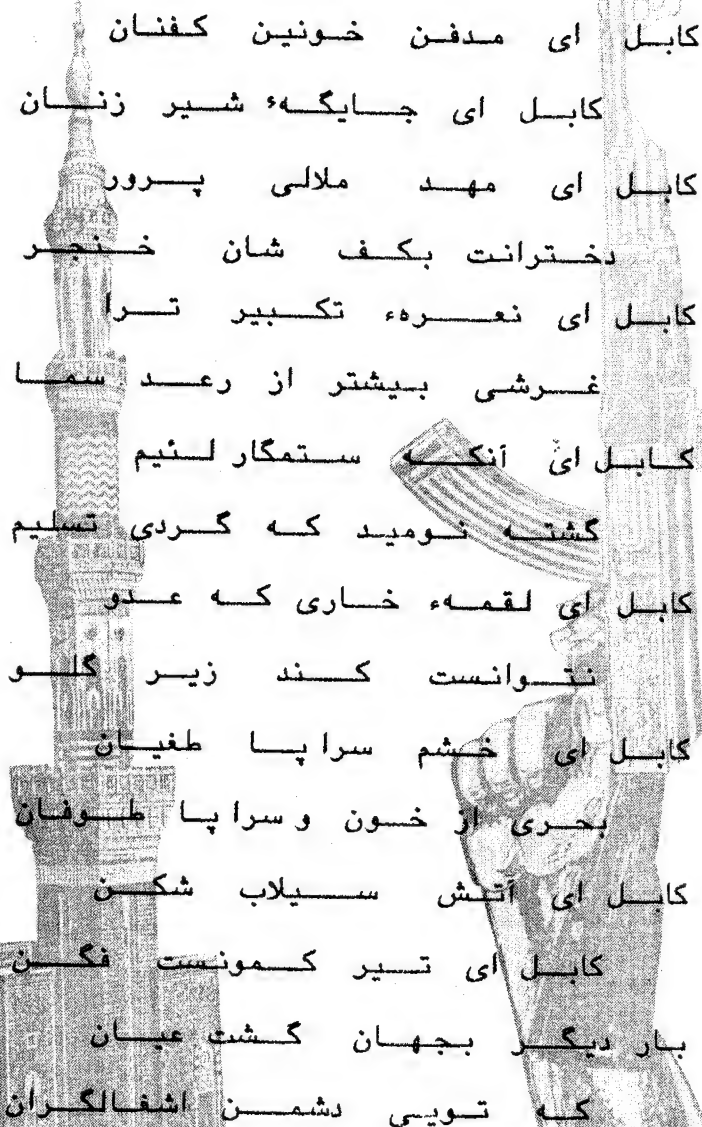 کابل ای مدفن خونین کفنان
کابل ای جایگهء شیر زنان
کابل ای مهد ملالی پرور
دخترانت بکف شان خنجر
کابل ای نعرهء تکبیر ترا
غرشی بیشتر از رعد سما
کابل ای آنکه ستمگار لئیم
گشته نومید که گردی تسلیم
کابل ای لقمهء خاری که عدو
نتوانست کند زیر گلو
کابل ای خشم سراپا طغیان
بحری از خون و سراپا طوفان
کابل ای آتش سیلاب شکن
کابل ای تیر کمونست فگن
بار دیگر بجهان گشت عیان
که تویی دشمن اشغالگران